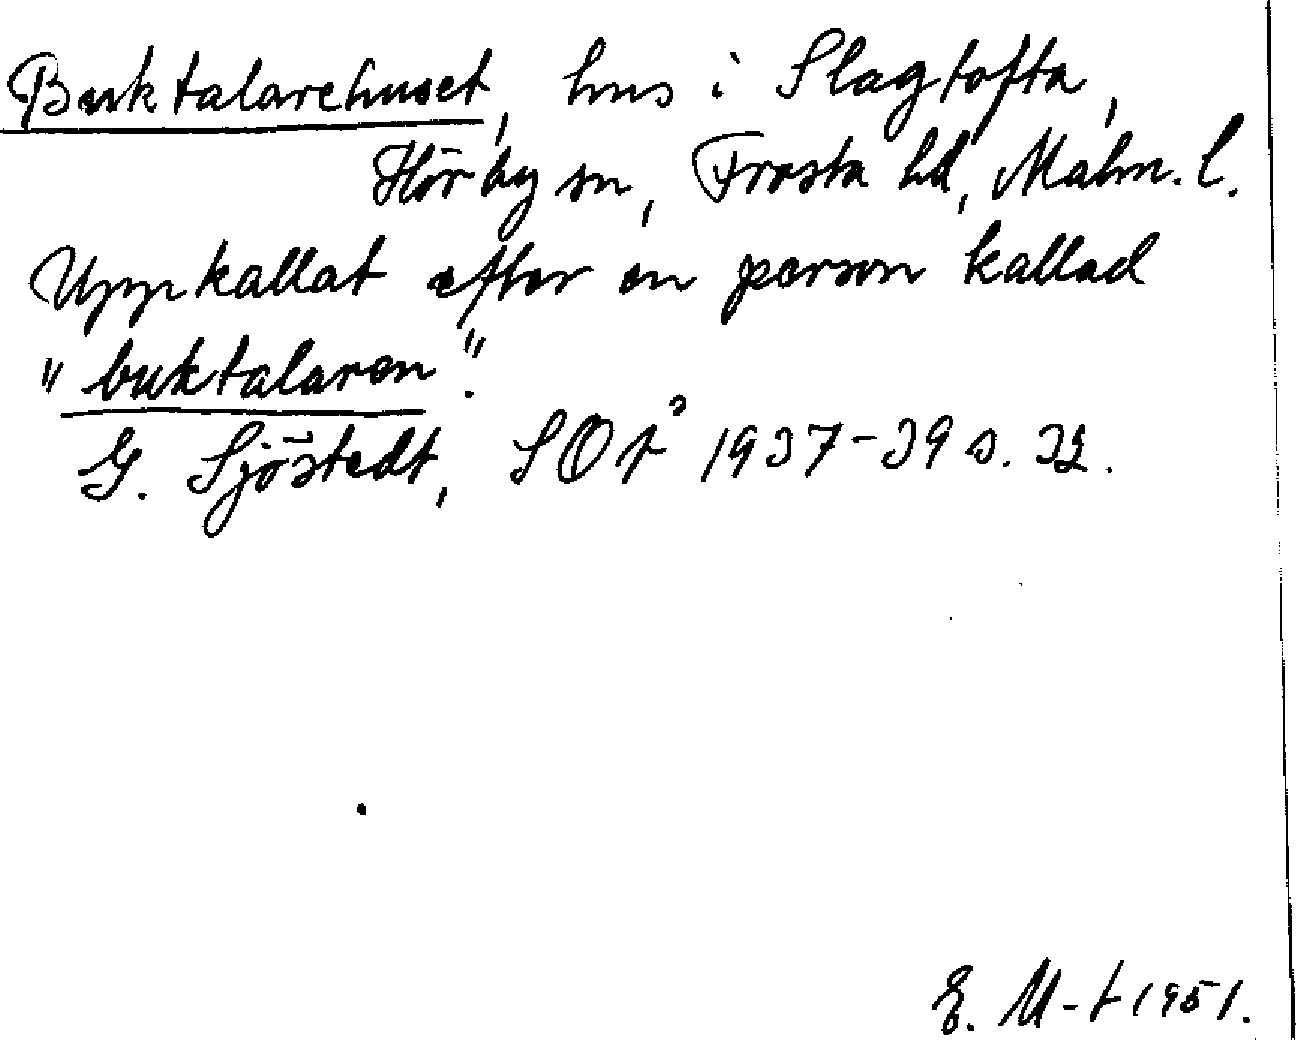 Buktalarehuset, hus i Slagtofta,
Hörby sn, Frosta hd, Malm. l.
Uppkallat efter en person kallad
"buktalaren".
G. Sjöstedt, SOÅ 1937-39 s. 32.
E. M-t 1951.